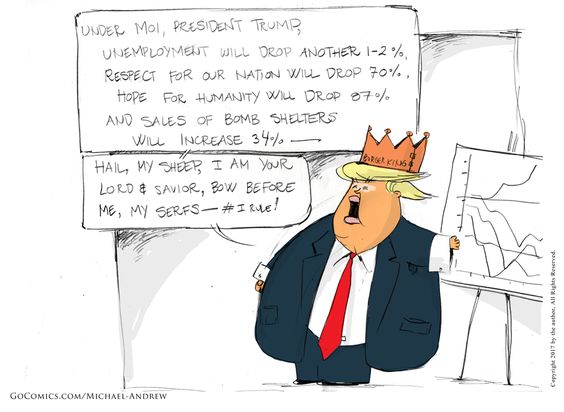 UNDER MOI, PRESIDENT TRUMP,
UNEMPLOYMENT WILL DROP ANOTHER 1-2%,
RESPECT FOR OUR NATION WILL DROP 70%,
HOPE FOR HUMANITY WILL DROP 87%
AND SALES OF BOMB SHELTERS
WILL INCREASE 34% —
HAIL, MY SHEEP, I AM YOUR
LORD & SAVIOR, BOW BEFORE
ME, MY SERFS — # I RULE!
BURGER KING
GOCOMICS.COM/MICHAEL-ANDREW
Copyright 2017 by the author, All Rights Reserved.